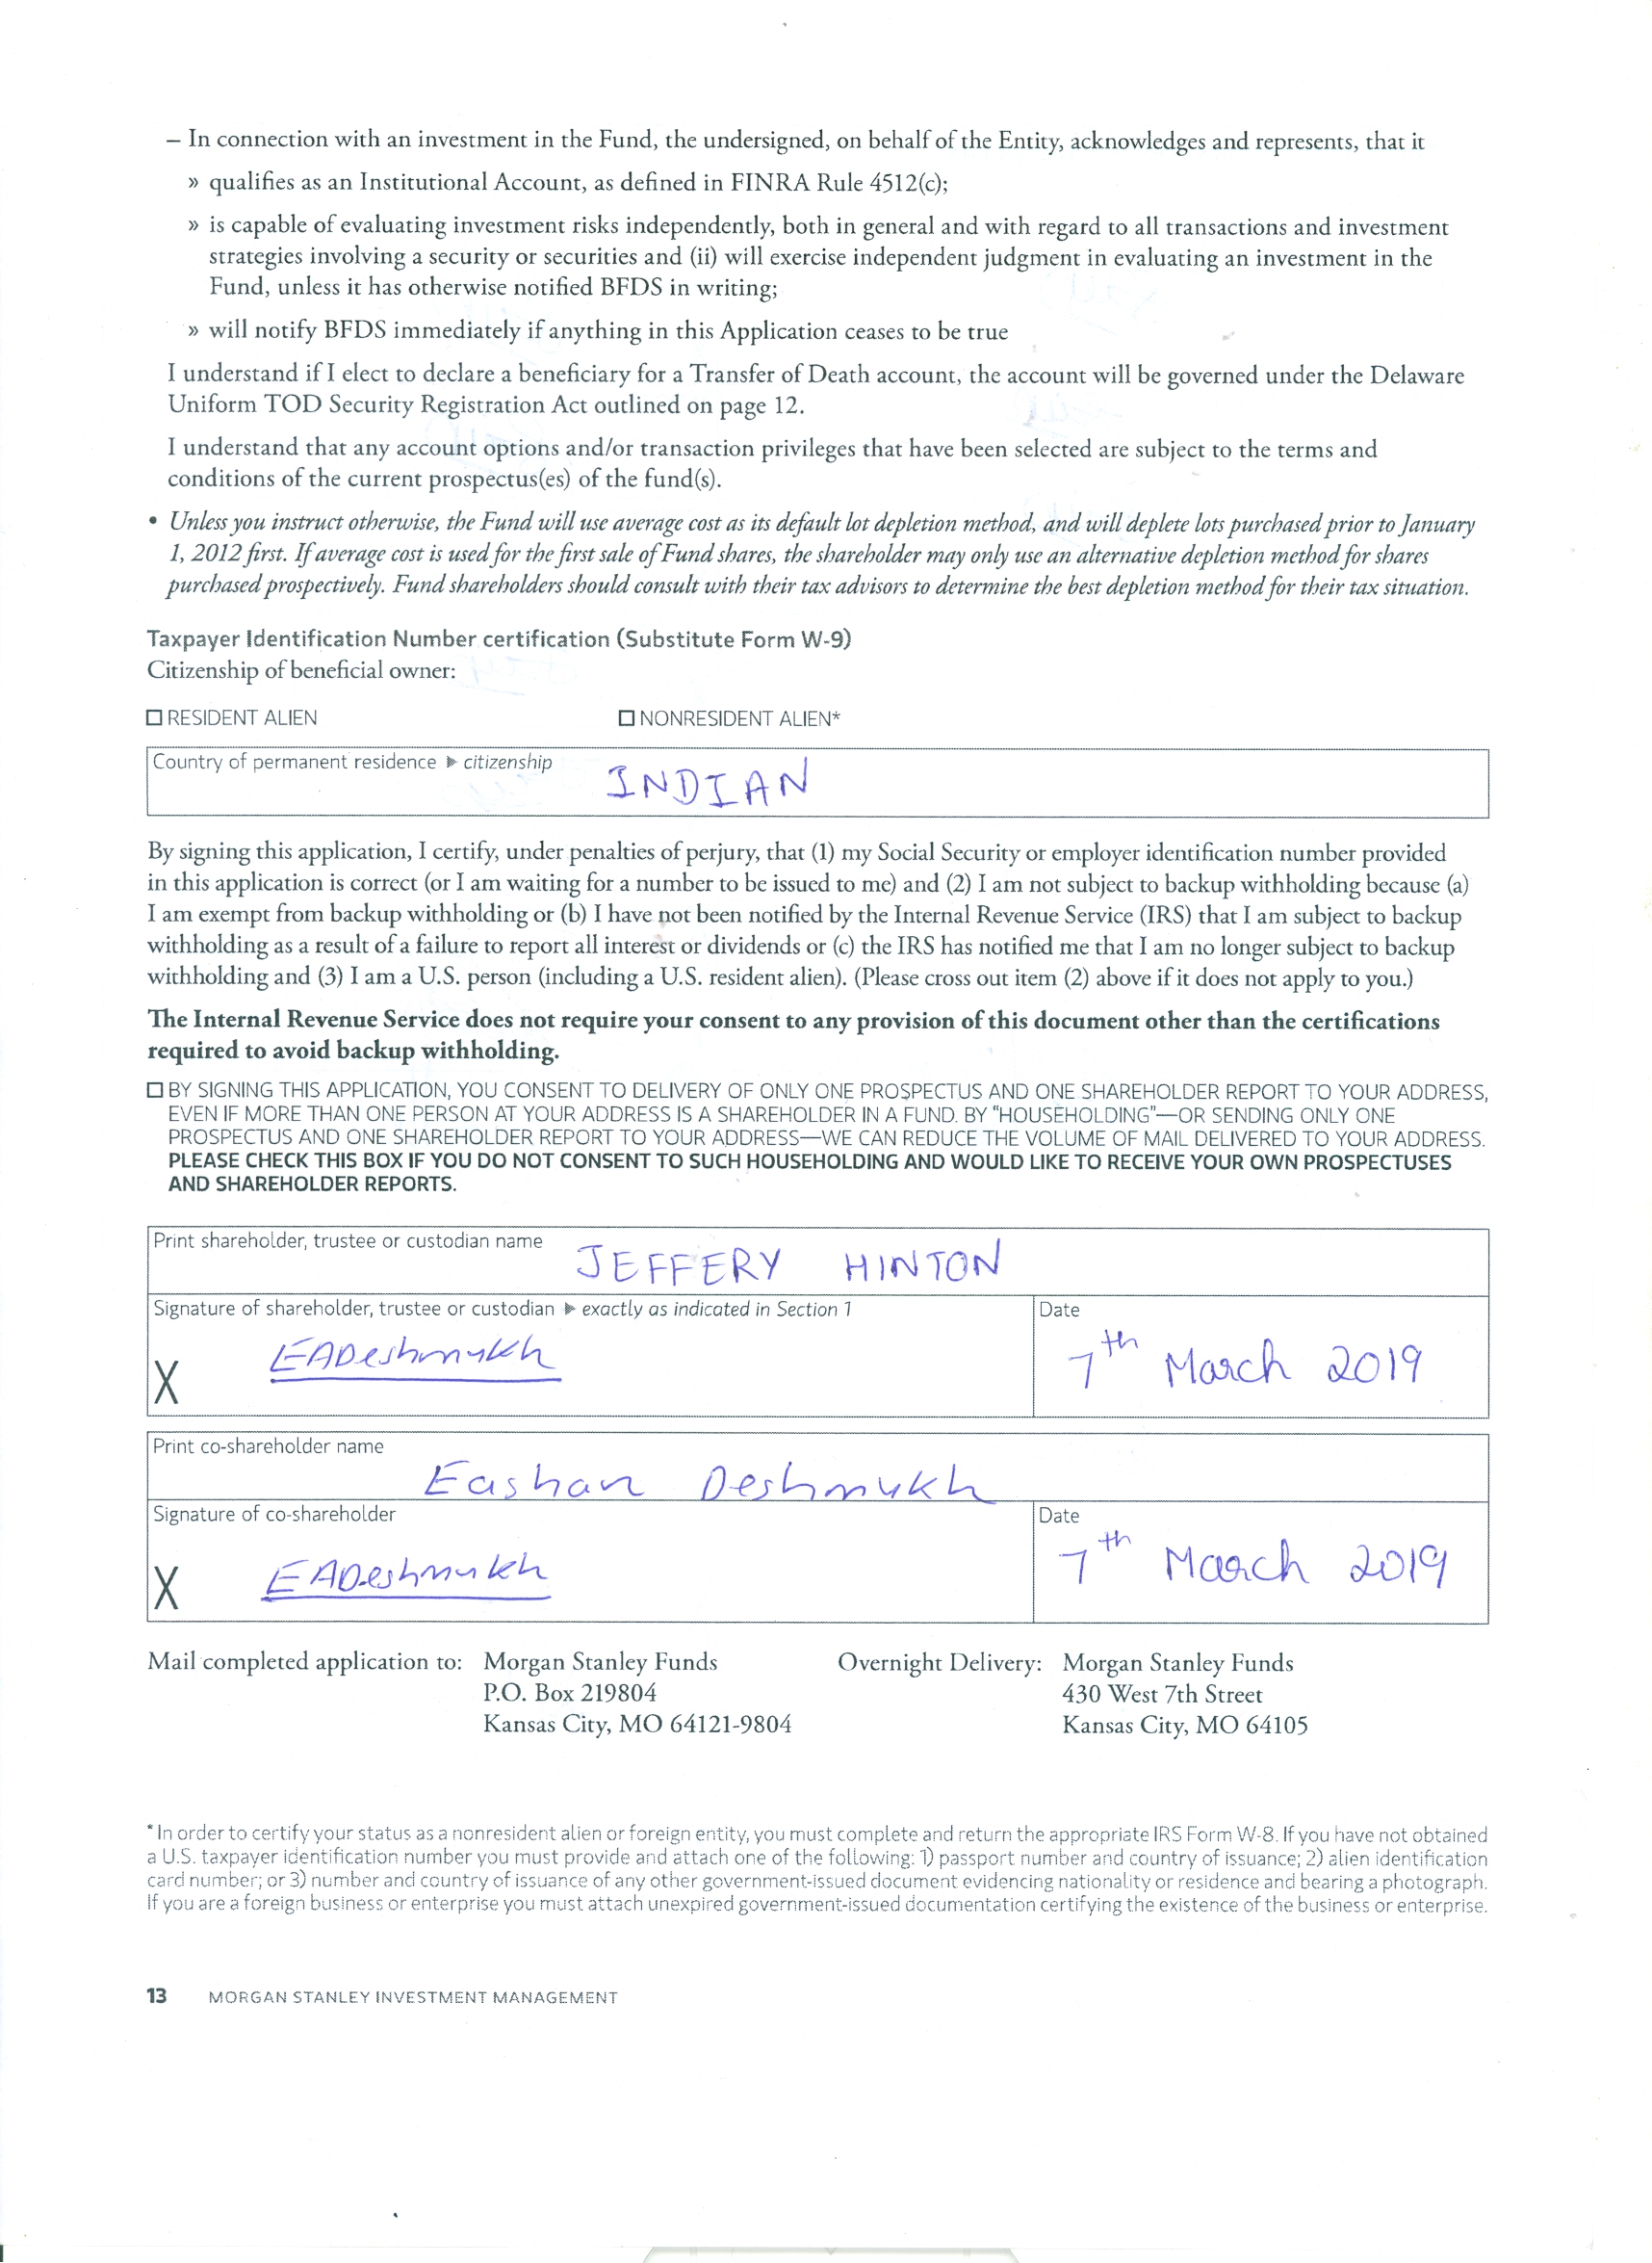 – In connection with an investment in the Fund, the undersigned, on behalf of the Entity, acknowledges and represents, that it
» qualifies as an Institutional Account, as defined in FINRA Rule 4512(c);
» is capable of evaluating investment risks independently, both in general and with regard to all transactions and investment
strategies involving a security or securities and (ii) will exercise independent judgment in evaluating an investment in the
Fund, unless it has otherwise notified BFDS in writing;
» will notify BFDS immediately if anything in this Application ceases to be true
I understand if I elect to declare a beneficiary for a Transfer of Death account, the account will be governed under the Delaware
Uniform TOD Security Registration Act outlined on page 12.
I understand that any account options and/or transaction privileges that have been selected are subject to the terms and
conditions of the current prospectus(es) of the fund(s).
• Unless you instruct otherwise, the Fund will use average cost as its default lot depletion method, and will deplete lots purchased prior to January
1, 2012 first. If average cost is used for the first sale of Fund shares, the shareholder may only use an alternative depletion method for shares
purchased prospectively. Fund shareholders should consult with their tax advisors to determine the best depletion method for their tax situation.
Taxpayer Identification Number certification (Substitute Form W-9)
Citizenship of beneficial owner:
☐ RESIDENT ALIEN ☐ NONRESIDENT ALIEN*
Country of permanent residence ▸ citizenship INDIAN
By signing this application, I certify, under penalties of perjury, that (1) my Social Security or employer identification number provided
in this application is correct (or I am waiting for a number to be issued to me) and (2) I am not subject to backup withholding because (a)
I am exempt from backup withholding or (b) I have not been notified by the Internal Revenue Service (IRS) that I am subject to backup
withholding as a result of a failure to report all interest or dividends or (c) the IRS has notified me that I am no longer subject to backup
withholding and (3) I am a U.S. person (including a U.S. resident alien). (Please cross out item (2) above if it does not apply to you.)
The Internal Revenue Service does not require your consent to any provision of this document other than the certifications
required to avoid backup withholding.
☐ BY SIGNING THIS APPLICATION, YOU CONSENT TO DELIVERY OF ONLY ONE PROSPECTUS AND ONE SHAREHOLDER REPORT TO YOUR ADDRESS,
EVEN IF MORE THAN ONE PERSON AT YOUR ADDRESS IS A SHAREHOLDER IN A FUND. BY "HOUSEHOLDING"—OR SENDING ONLY ONE
PROSPECTUS AND ONE SHAREHOLDER REPORT TO YOUR ADDRESS—WE CAN REDUCE THE VOLUME OF MAIL DELIVERED TO YOUR ADDRESS.
PLEASE CHECK THIS BOX IF YOU DO NOT CONSENT TO SUCH HOUSEHOLDING AND WOULD LIKE TO RECEIVE YOUR OWN PROSPECTUSES
AND SHAREHOLDER REPORTS.
Print shareholder, trustee or custodian name JEFFERY HINTON
Signature of shareholder, trustee or custodian ▸ exactly as indicated in Section 1 Date
X EADeshmukh 7th March 2019
Print co-shareholder name
Eashan Deshmukh
Signature of co-shareholder Date
X EADeshmukh 7th March 2019
Mail completed application to: Morgan Stanley Funds Overnight Delivery: Morgan Stanley Funds
P.O. Box 219804 430 West 7th Street
Kansas City, MO 64121-9804 Kansas City, MO 64105
* In order to certify your status as a nonresident alien or foreign entity, you must complete and return the appropriate IRS Form W-8. If you have not obtained
a U.S. taxpayer identification number you must provide and attach one of the following: 1) passport number and country of issuance; 2) alien identification
card number; or 3) number and country of issuance of any other government-issued document evidencing nationality or residence and bearing a photograph.
If you are a foreign business or enterprise you must attach unexpired government-issued documentation certifying the existence of the business or enterprise.
13 MORGAN STANLEY INVESTMENT MANAGEMENT